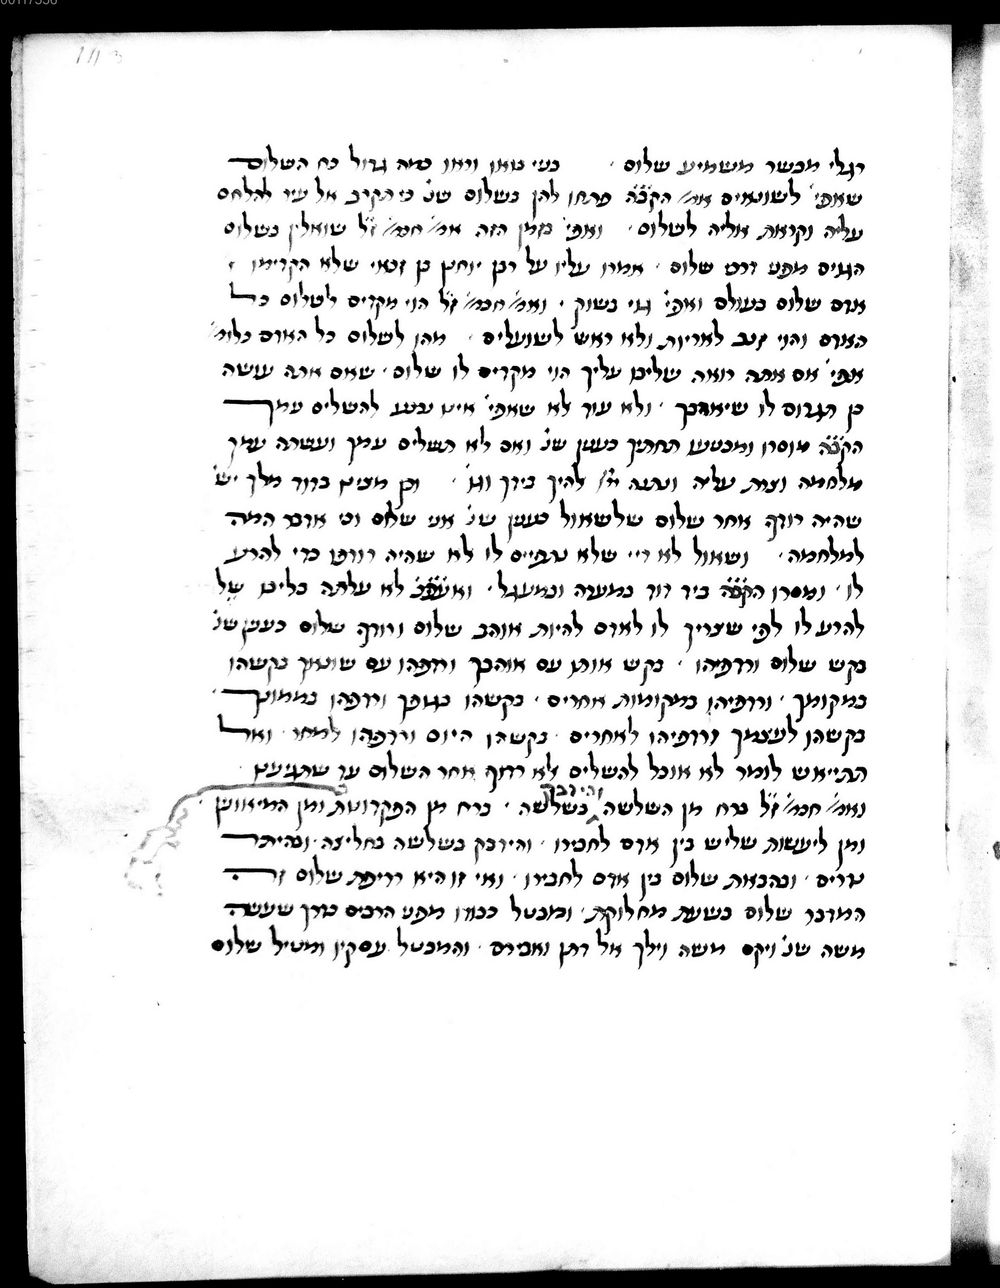 רגלי מבשר משמיע שלום · בני בואו וראו כמה גדול כח השלום
שאפי' לשונאים אמ' הק'ב'ה פתחו להן בשלום שנ' כי תקרב אל עיר להלחם
עליה וקראת אליה לשלום · ואפי' בזמן הזה אמ' חכמ' ז'ל שואלין בשלום
הגוים מפני דרכי שלום · אמרו עליו על רבן יוחנן בן זכאי שלא הקדימו
אדם שלום בעולם ואפי' גוי בשוק · ואמ' חכמ' ז'ל הוי מקדים לשלום כל
האדם והוי זנב לאריות ולא ראש לשועלים · מהו לשלום כל האדם כלומ'
אפי' אם אתה רואה שלבו עליך הוי מקדים לו שלום · שאם אתה עושה
כן תגרום לו שיאהבך · ולא עוד לא שאפי' אינו נכנע להשלים עמך
הק'ב'ה מוסרו ומכניעו תחתיך כענין שנ' ואם לא תשלים עמך ועשתה עמך
מלחמה וצרת עליה ונתנה יי' להיך בידך וגו' · וכן מצינו בדוד מלך יש'
שהיה רודף אחר שלום שלשאול כענין שנ' אני שלום וכי אדבר המה
למלחמה · ושאול לא דיי שלא נתפייס לו לא שהיה רודפו כדי להרע
לו · ומסרו הק'ב'ה ביד דוד במערה ובמעגל · ואעפ'כ לא עלתה בליבו של
להרע לו לפי שצריך לו לאדם להיות אוהב שלום ורודף שלום כענין שנ'
בקש שלום ורדפיהו · בקש אותו עם אוהבך ורדפהו עם שונאך בקשהו
במקומך · ורדפיהו במקומות אחרים · בקשהו בגופך ורדפהו בממונך
בקשהו לעצמך ורדפיהו לאחרים · בקשהו היום ורדפהו למחר · ואל
תתייאש לומר לא אוכל להשלים לא רדוף אחר השלום עד שתגיענו ·
ואמ' חכמ' ז'ל ברח מן השלשה והידבק בשלשה · ברח מן הפקדונות ומן המיאונין
ומן ליעשות שליש בין אדם לחבירו · והידבק בשלשה בחליצה · ובהיתר
נדרים · ובהבאת שלום בין אדם לחבירו · ואי זו היא רדיפת שלום זה
המדבר שלום בשעת מחלוקת · ומבטל כבודו מפני הרבים כדרך שעשה
משה שנ' ויקם משה וילך אל דתן ואבירם · והמבטל עסקיו ומטיל שלום